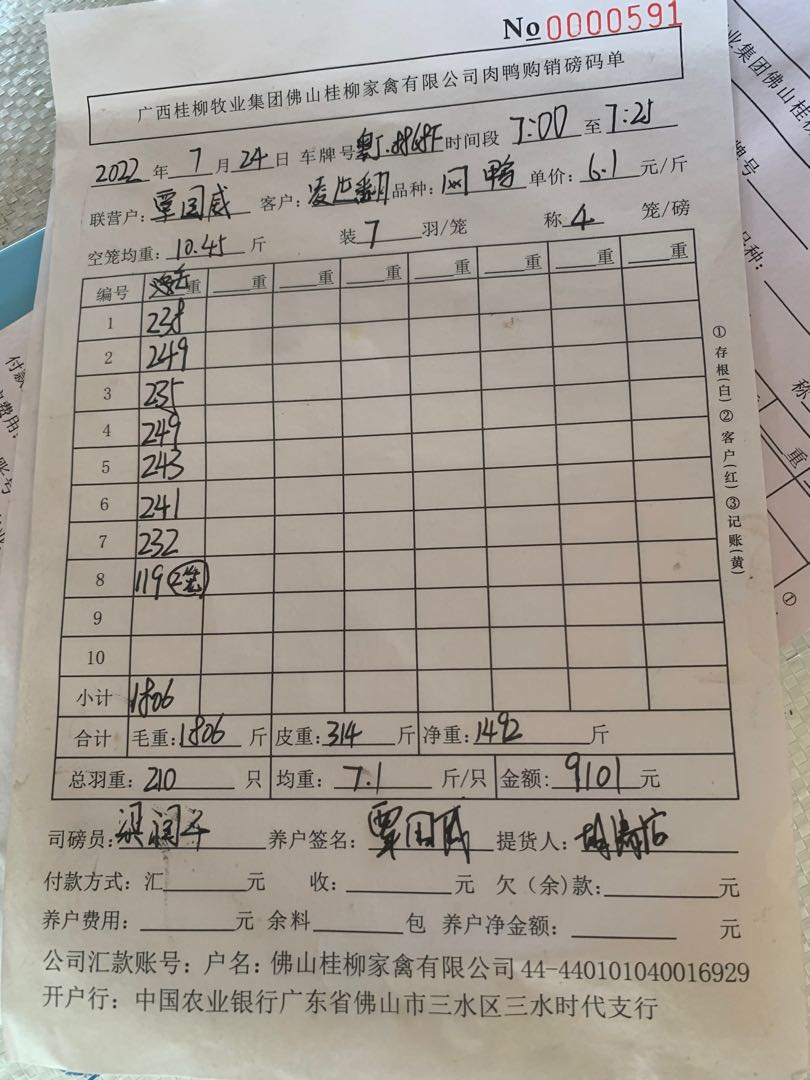 No 0000591
广西桂柳牧业集团佛山桂柳家禽有限公司肉鸭购销磅码单
2022 年 7 月 24 日 车牌号 时间段 7:00 至 7:25
联营户: 覃国威 客户: 品种: 鸭 单价: 6.1 元/斤
空笼均重: 10.45 斤 装 7 羽/笼 称 4 笼/磅
编号 重 重 重 重 重 重 重 重
1 238
2 249
3 235
4 249
5 243
6 241
7 232
8 119 2笼
9
10
小计 1806
合计 毛重: 1806 斤 皮重: 314 斤 净重: 1492 斤
总羽重: 210 只 均重: 7.1 斤/只 金额: 9101 元
司磅员: 养户签名: 覃国威 提货人:
付款方式: 汇 元 收: 元 欠(余)款: 元
养户费用: 元 余料 包 养户净金额: 元
公司汇款账号: 户名: 佛山桂柳家禽有限公司 44-440101040016929
开户行: 中国农业银行广东省佛山市三水区三水时代支行
①存根(白)②客户(红)③记账(黄)
业集团佛山桂柳
牌号
品种:
称
重
①
付款
户费用:
账号